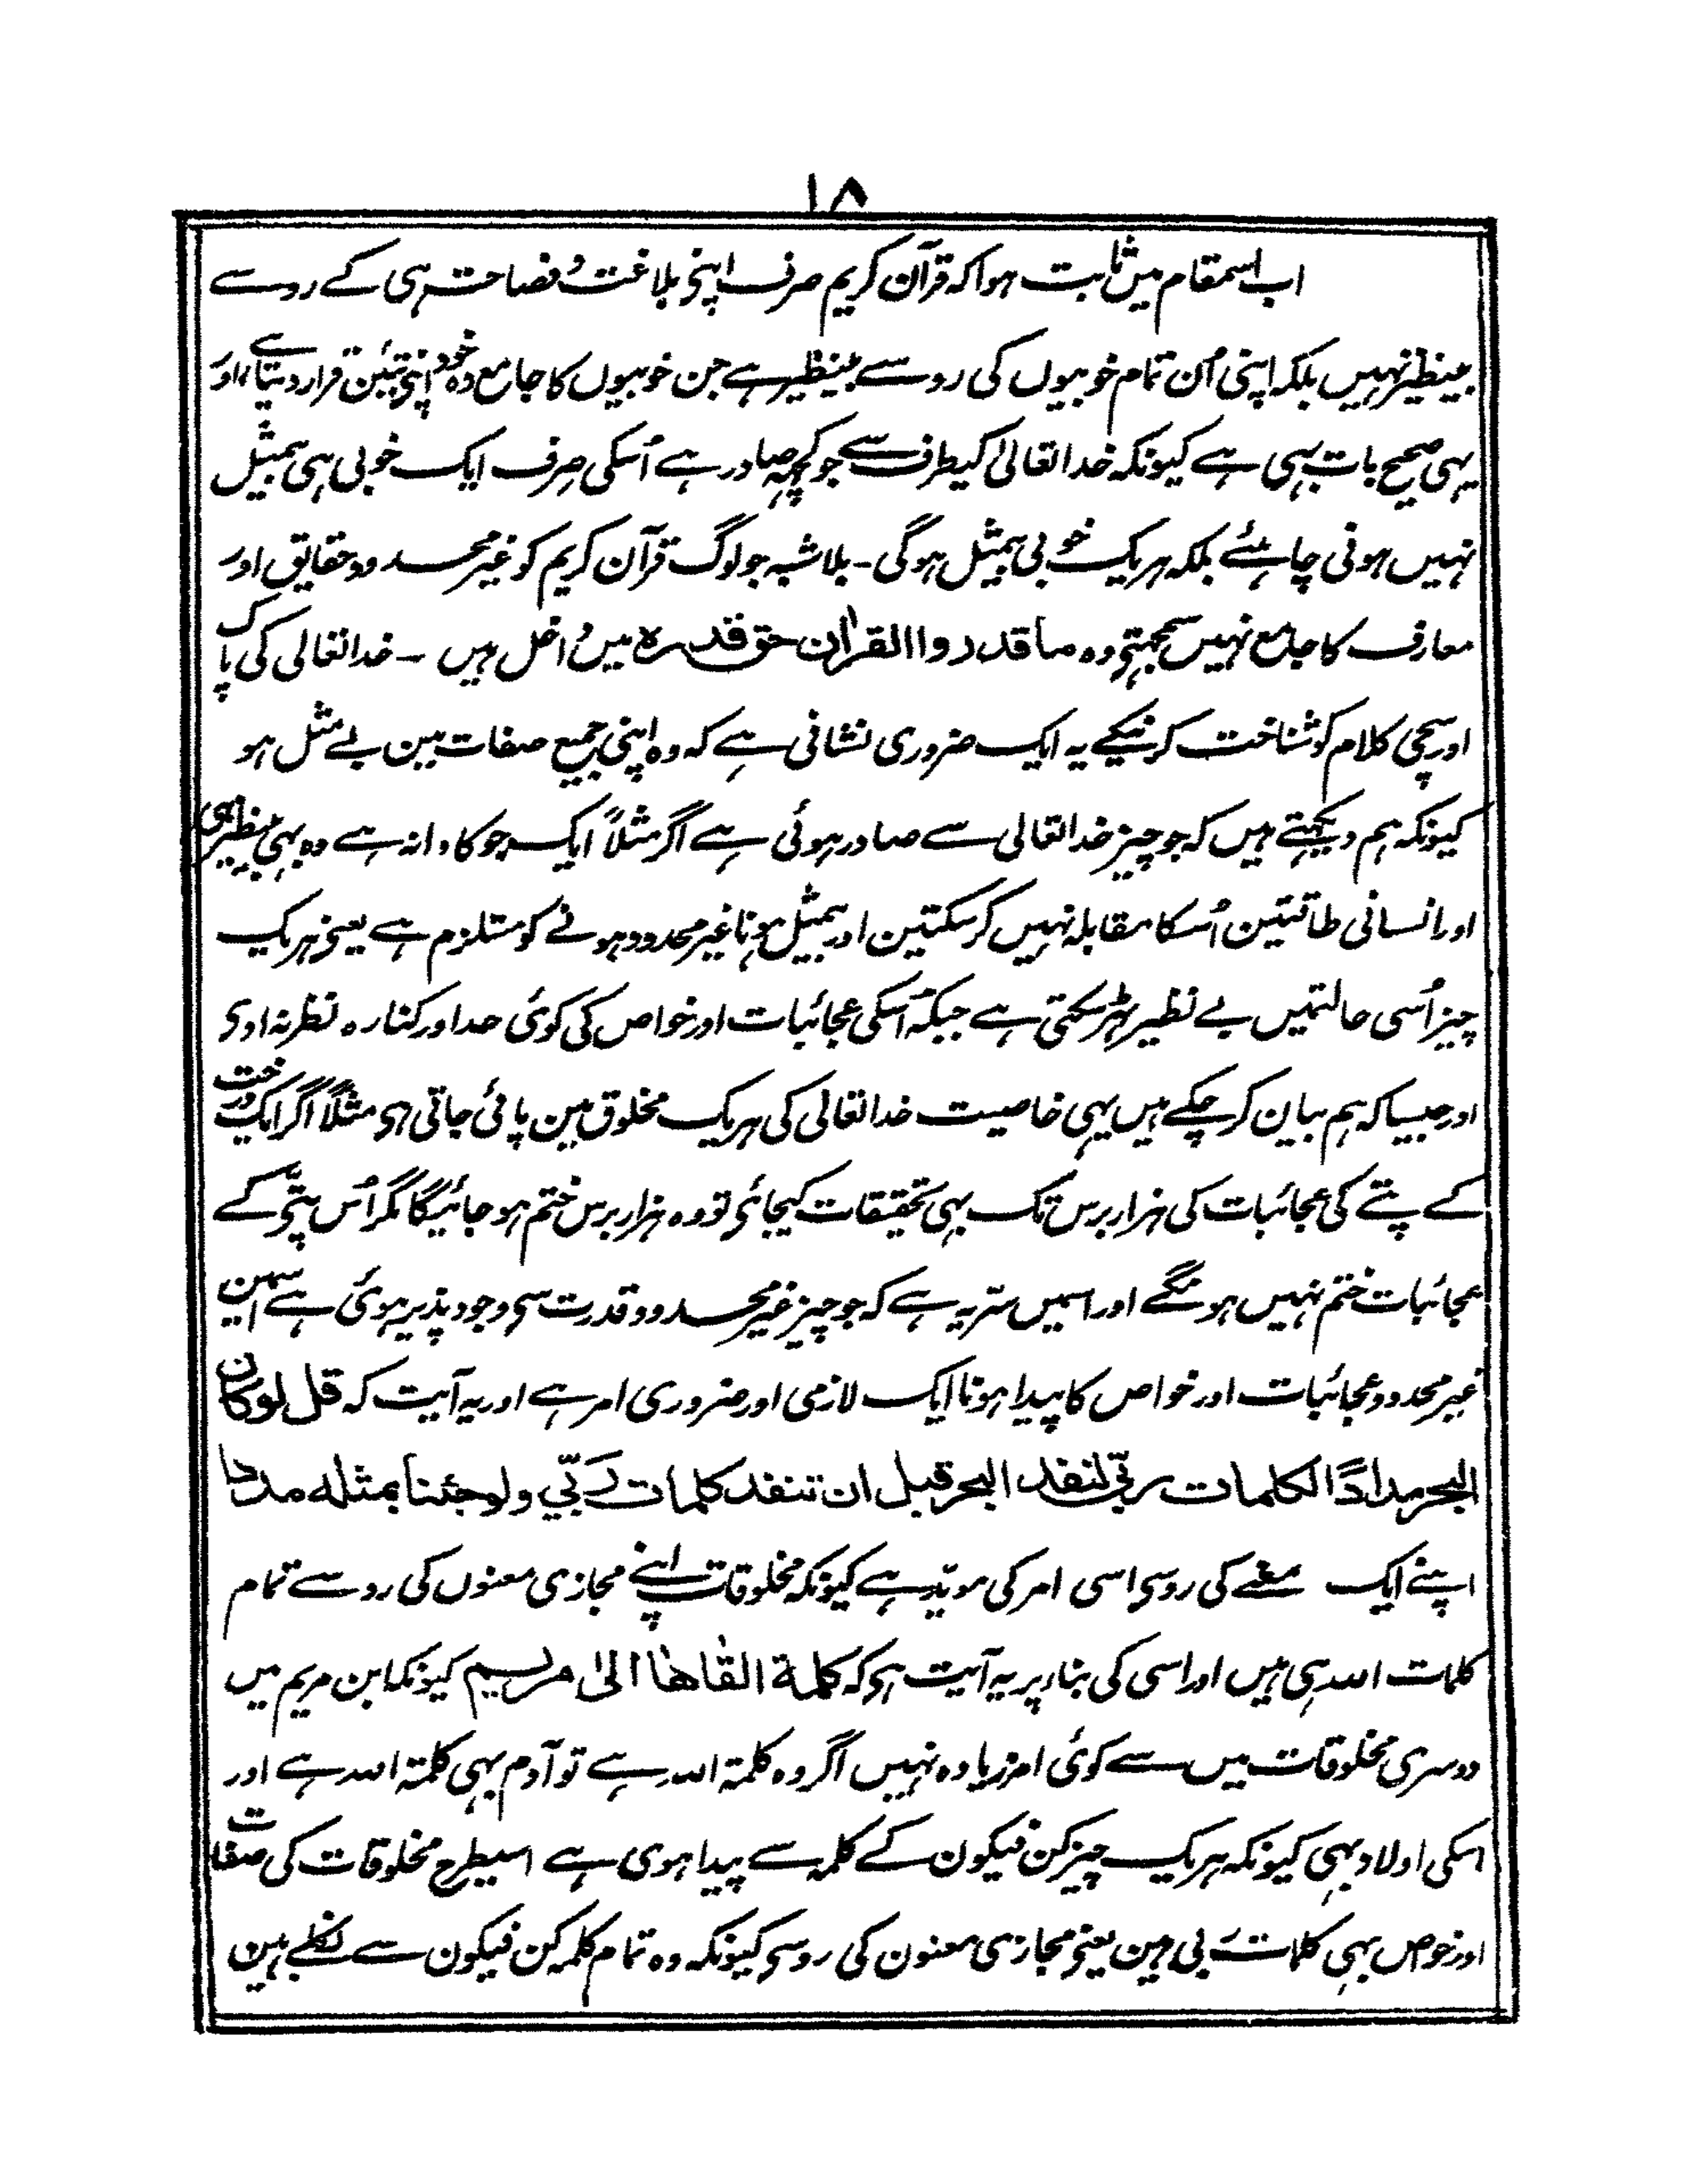 ۱۸
اب اسمقام میں ثابت ہوا کہ قرآن کریم صرف اپنی بلاغت و فصاحت ہی کے رو سے
بینظیر نہیں بلکہ اپنی اُن تمام خوبیوں کی رو سے بینظیر ہے جن خوبیوں کا جامع وہ خود اپنی تئین قرار دیتا ہے اور
یہی صحیح بات بہی ہے کیونکہ خدا تعالیٰ کیطرف سے جو کچہہ صادر ہے اُسکی صرف ایک خوبی ہی بیمثل
نہیں ہونی چاہئے بلکہ ہریک خوبی بیمثل ہوگی - بلاشبہ جو لوگ قرآن کریم کو غیر محدود حقایق اور
معارف کا جامع نہیں سمجہتی وہ ما قدروا القراٰن حق قدرہ میں داخل ہیں - خدا تعالی کی پاک
اور سچی کلام کو شناخت کرنیکے یہ ایک ضروری نشانی ہے کہ وہ اپنی جمیع صفات مین بے مثل ہو
کیونکہ ہم دیکہتے ہیں کہ جو چیز خدا تعالی سے صادر ہوئی ہے اگر مثلاً ایک جو کا دانہ ہے وہ بہی بینظیر ہی
اور انسانی طاقتین اُسکا مقابلہ نہیں کر سکتین اور بیمثل ہونا غیر محدود ہونے کو مستلزم ہے یعنی ہریک
چیز اُسی حالتمیں بے نظیر ٹہر سکتی ہے جبکہ اُسکی عجائبات اور خواص کی کوئی حد اور کنارہ نظر نہ اوی
اور جیسا کہ ہم بیان کر چکے ہیں یہی خاصیت خدا تعالی کی ہریک مخلوق مین پائی جاتی ہی مثلاً اگر ایک درخت
کے پتے کی عجائبات کی ہزار برس تک بہی تحقیقات کیجائی تو وہ ہزار برس ختم ہو جائیگا مگر اُس پتّی کے
عجائبات ختم نہیں ہونگے اور اسمیں سرّ یہ ہے کہ جو چیز غیر محدود قدرت سی وجود پذیر ہوئی ہے اسمین
غیر محدود عجائبات اور خواص کا پیدا ہونا ایک لازمی اور ضروری امر ہے اور یہ آیت کہ قل لوکان
البحر مدادًا لکلمات ربّی لنفد البحر قبل ان تنفد کلمات ربّي ولو جئنا بمثله مددا
اپنے ایک معنے کی روسی اسی امر کی مویّد ہے کیونکہ مخلوقات اپنے مجازی معنوں کی رو سے تمام
کلمات اللہ ہی ہیں اور اسی کی بناء پر یہ آیت ہی کہ کلمة القٰاهٰا الیٰ مریم کیونکہ ابن مریم میں
دوسری مخلوقات میں سے کوئی امر زیادہ نہیں اگر وہ کلمۃ اللہ ہے تو آدم بہی کلمۃ اللہ ہے اور
اسکی اولاد بہی کیونکہ ہریک چیز کن فیکون کے کلمہ سے پیدا ہوی ہے اسیطرح مخلوقات کی صفات
اور خواص بہی کلمات ربی ہین یعنی مجازی معنون کی روسی کیونکہ وہ تمام کلمہ کن فیکون سے نکلے ہین